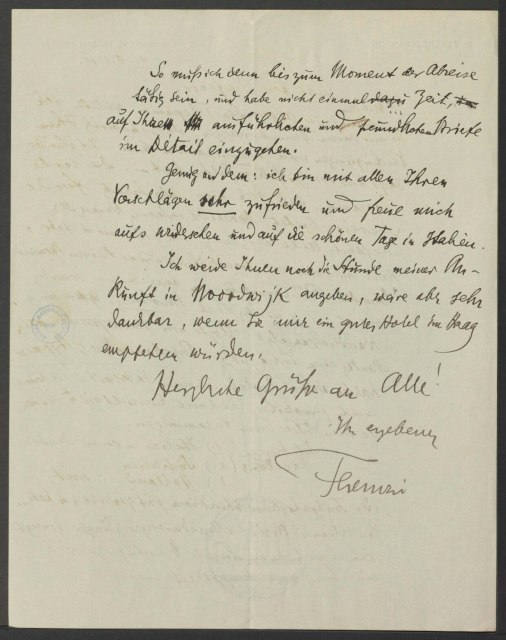 So muß ich denn bis zum Moment der Abreise
tätig sein, und habe nicht einmal dazu Zeit,
auf Ihren ausführlichen und freundlichen Briefe
im Detail einzugehen.
Genug an dem: ich bin mit allen Ihren
Vorschlägen sehr zufrieden und freue mich
aufs wiedersehen und auf die schönen Tage in Italien.
Ich werde Ihnen noch die Stunde meiner An-
kunft in Noordwijk angeben, wäre aber sehr
dankbar, wenn Sie mir ein gutes Hotel im Haag
empfehlen würden.
Herzliche Grüße an Alle!
Ihr ergebener